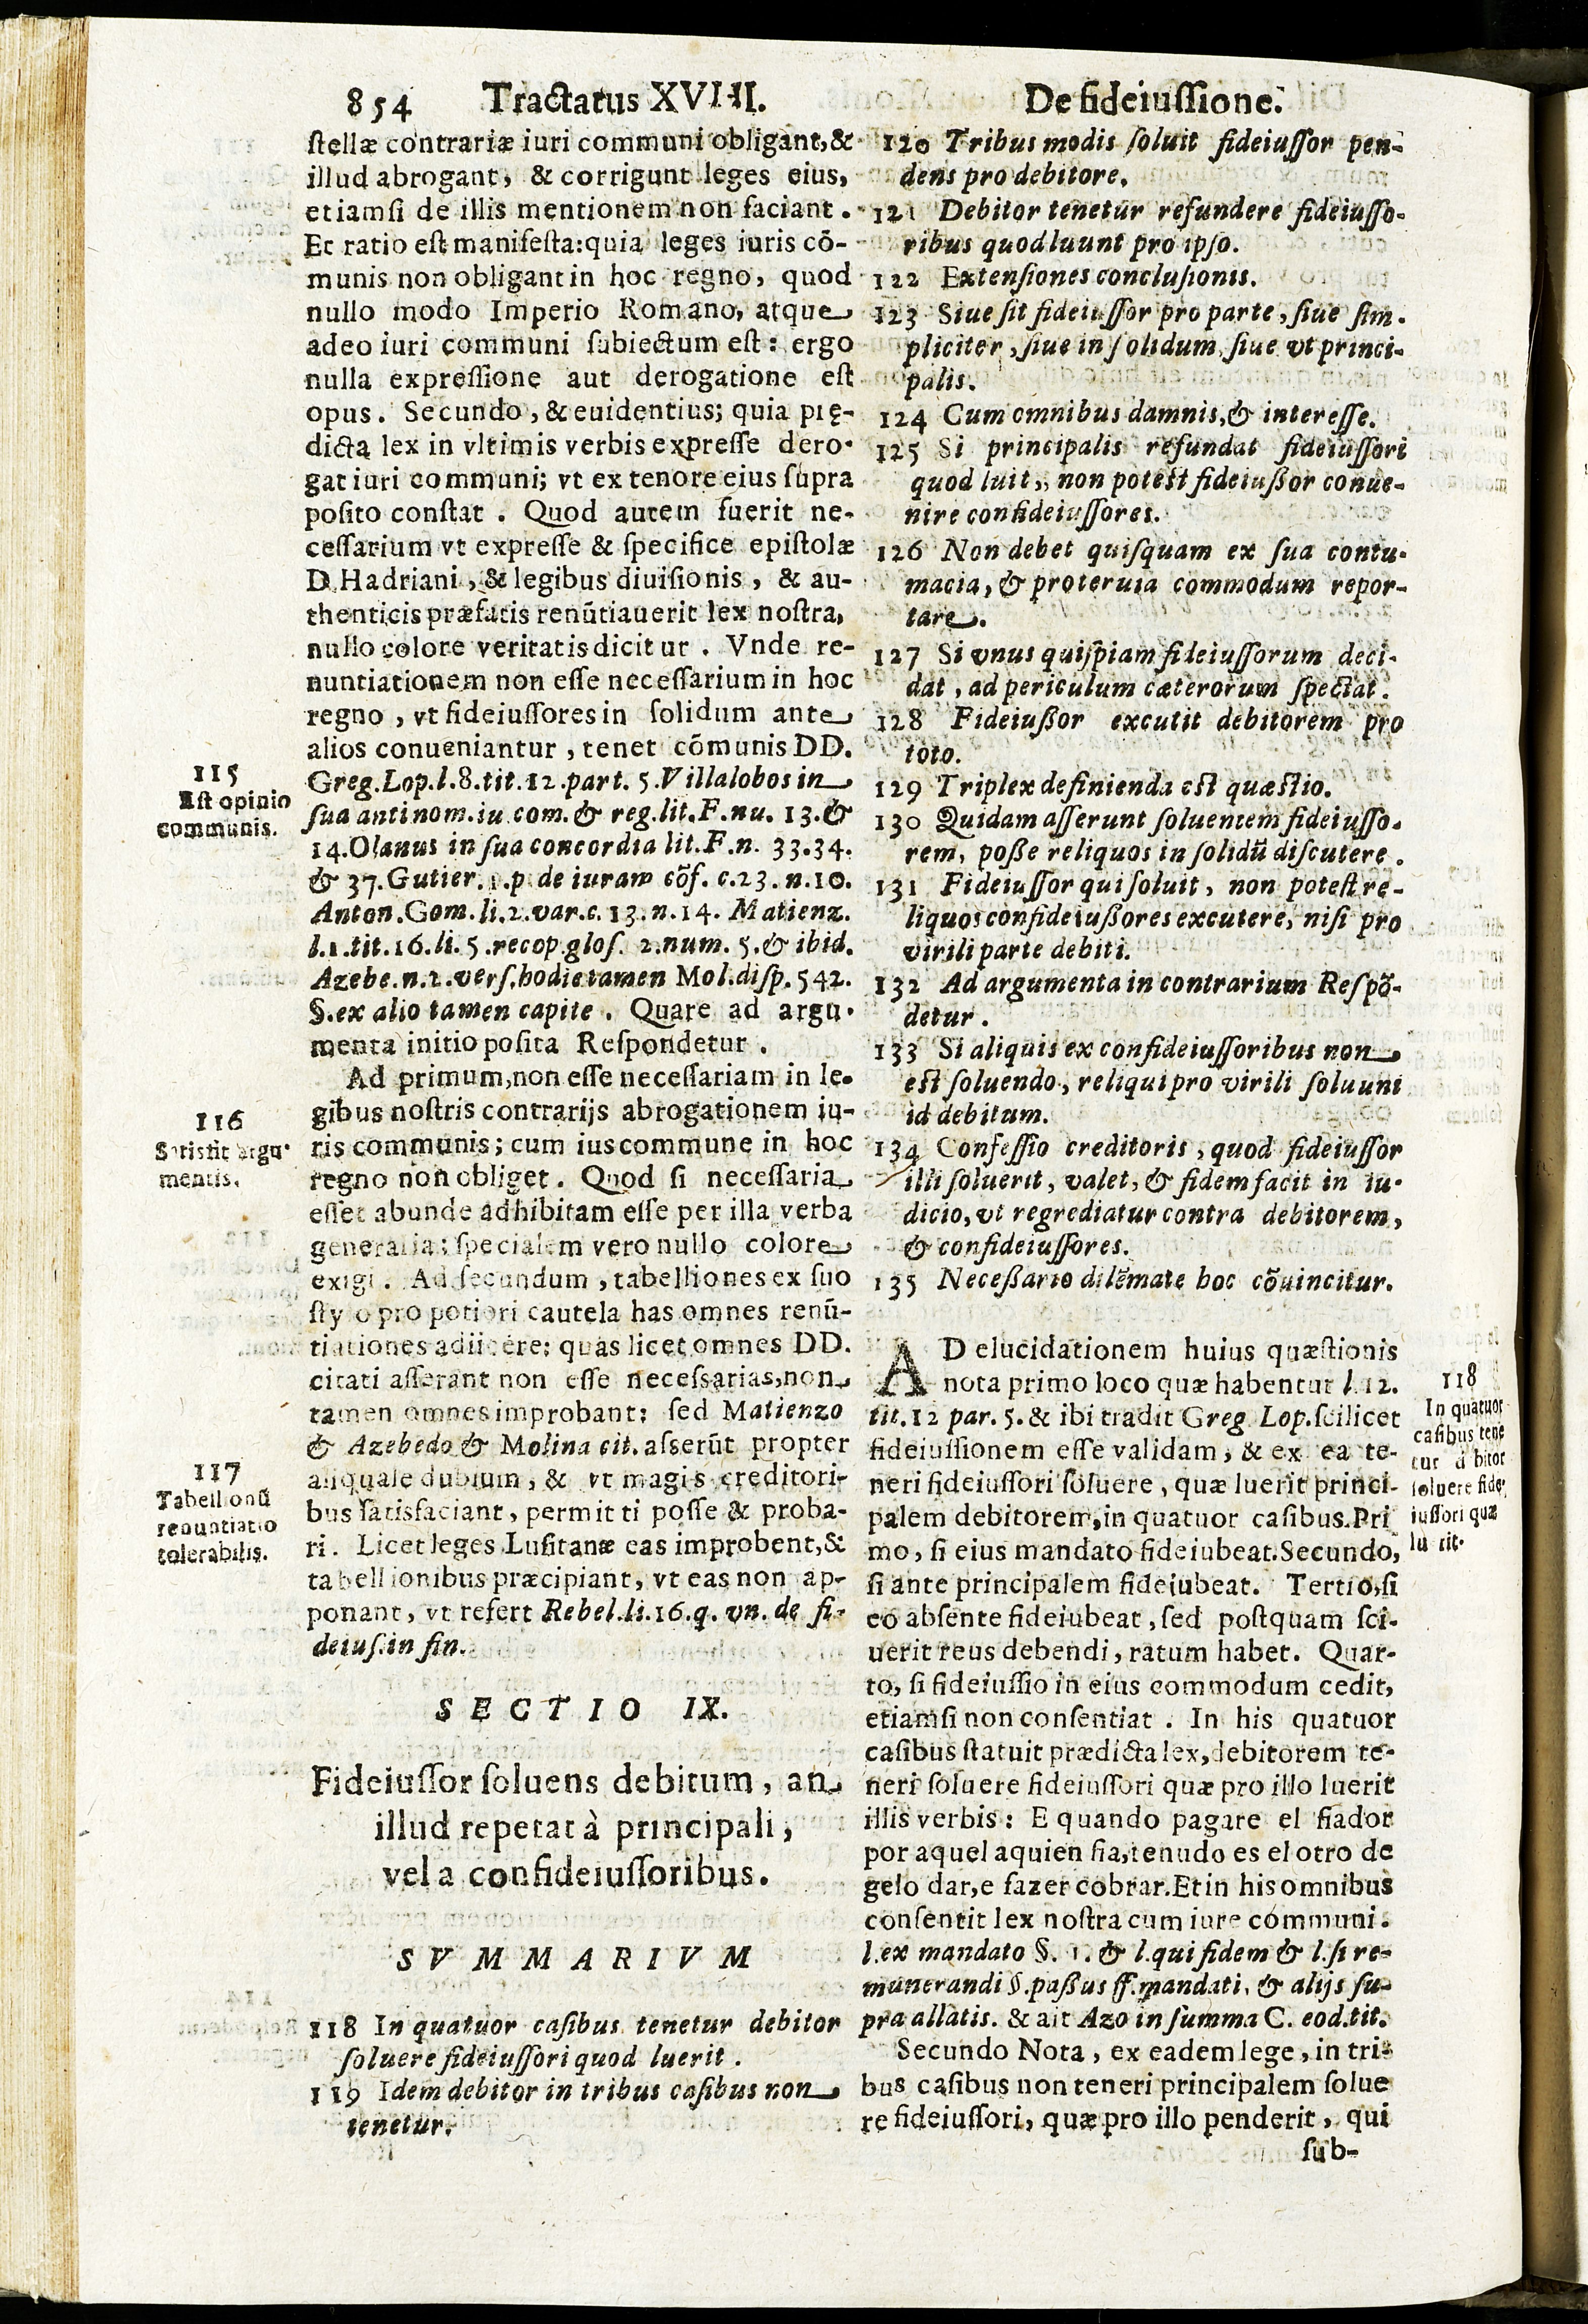 854 Tractatus XVIII. De fideiussione.
ſtellæ contrariæ iuri communi obligant, &
illud abrogant, & corrigunt leges eius,
etiamſi de illis mentionem non faciant.
Et ratio eſt manifeſta: quia leges iuris cō-
munis non obligant in hoc regno, quod
nullo modo Imperio Romano, atque
adeo iuri communi ſubiectum eſt: ergo
nulla expreſſione aut derogatione eſt
opus. Secundo, & euidentius; quia pię-
dicta lex in vltimis verbis expreſſe dero-
gat iuri communi; vt ex tenore eius ſupra
poſito conſtat. Quod autem fuerit ne-
ceſſarium vt expreſſe & ſpecifice epiſtolæ
D. Hadriani, & legibus diuiſionis, & au-
thenticis præfatis renūtiauerit lex noſtra,
nullo colore veritatis dicitur. Vnde re-
nuntiationem non eſſe neceſſarium in hoc
regno, vt fideiuſſores in ſolidum ante
alios conueniantur, tenet cōmunis DD.
115
Eſt opinio
communis.
Greg. Lop. l. 8. tit. 12. part. 5. Villalobos in
ſua antinom. iu. com. & reg. lit. F. nu. 13. &
14. Olanus in ſua concordia lit. F. n. 33. 34.
& 37. Gutier. 1. p. de iuram cōf. c. 23. n. 10.
Anton. Gom. li. 2. var. c. 13. n. 14. Matienz.
l. 1. tit. 16. li. 5. recop. gloſ. 2. num. 5. & ibid.
Azebe. n. 2. verſ. hodie tamen Mol. diſp. 542.
§. ex alio tamen capite. Quare ad argu-
menta initio poſita Reſpondetur.
Ad primum, non eſſe neceſſariam in le-
116
Satisfit argu-
mentis.
gibus noſtris contrarijs abrogationem iu-
ris communis; cum ius commune in hoc
regno non obliget. Quod ſi neceſſaria
eſſet abunde adhibitam eſſe per illa verba
generalia: ſpecialem vero nullo colore
exigi. Ad ſecundum, tabelliones ex ſuo
ſty o pro potiori cautela has omnes renū-
tiationes adiicere: quas licet omnes DD.
citati aſſerant non eſſe neceſsarias, non
tamen omnes improbant: ſed Matienzo
& Azebedo & Molina cit. aſserūt propter
117
Tabellionū
renuntiatio
tolerabilis.
aliquale dubium, & vt magis creditori-
bus ſatisfaciant, permitti poſſe & proba-
ri. Licet leges Luſitanæ eas improbent, &
tabellionibus præcipiant, vt eas non ap-
ponant, vt refert Rebel. li. 16. q. vn. de fi-
deiuſ. in fin.
SECTIO IX.
Fideiuſſor ſoluens debitum, an
illud repetat à principali,
vel a confideiuſſoribus.
SVMMARIVM
118 In quatuor caſibus tenetur debitor
ſoluere fideiuſſori quod luerit.
119 Idem debitor in tribus caſibus non
tenetur.
120 Tribus modis ſoluit fideiuſſor pen-
dens pro debitore.
121 Debitor tenetur refundere fideiuſſo-
ribus quod luunt pro ipſo.
122 Extenſiones concluſionis.
123 Siue ſit fideiuſſor pro parte, ſiue ſim-
pliciter, ſiue in ſolidum, ſiue vt princi-
palis.
124 Cum omnibus damnis, & intereſſe.
125 Si principalis refundat fideiuſſori
quod luit, non poteſt fideiuſſor conue-
nire confideiuſſores.
126 Non debet quiſquam ex ſua contu-
macia, & proteruia commodum repor-
tare.
127 Si vnus quiſpiam fideiuſſorum deci-
dat, ad periculum cæterorum ſpectat.
128 Fideiuſſor excutit debitorem pro
toto.
129 Triplex definienda eſt quæſtio.
130 Quidam aſſerunt ſoluentem fideiuſſo-
rem, poſſe reliquos in ſolidū diſcutere.
131 Fideiuſſor qui ſoluit, non poteſt re-
liquos confideiuſſores excutere, niſi pro
virili parte debiti.
132 Ad argumenta in contrarium Reſpō-
detur.
133 Si aliquis ex confideiuſſoribus non
eſt ſoluendo, reliqui pro virili ſoluunt
id debitum.
134 Confeſſio creditoris, quod fideiuſſor
illi ſoluerit, valet, & fidem facit in iu-
dicio, vt regrediatur contra debitorem,
& confideiuſſores.
135 Neceſſario dilēmate hoc cōuincitur.
AD elucidationem huius quæſtionis
nota primo loco quæ habentur l. 12.
118
In quatuor
caſibus tene
tur d bitor
ſoluere fide
iuſſori quæ
lu rit.
tit. 12 par. 5. & ibi tradit Greg. Lop. ſcilicet
fideiuſſionem eſſe validam, & ex ea te-
neri fideiuſſori ſoluere, quæ luerit princi-
palem debitorem, in quatuor caſibus. Pri
mo, ſi eius mandato fideiubeat. Secundo,
ſi ante principalem fideiubeat. Tertio, ſi
eo abſente fideiubeat, ſed poſtquam ſci-
uerit reus debendi, ratum habet. Quar-
to, ſi fideiuſſio in eius commodum cedit,
etiamſi non conſentiat. In his quatuor
caſibus ſtatuit prædicta lex, debitorem te-
neri ſoluere fideiuſſori quæ pro illo luerit
illis verbis: E quando pagare el fiador
por aquel aquien fia, tenudo es el otro de
gelo dar, e fazer cobrar. Et in his omnibus
conſentit lex noſtra cum iure communi.
l. ex mandato §. 1. & l. qui fidem & l. ſi re-
munerandi §. paſſus ff. mandati, & alijs ſu-
pra allatis. & ait Azo in ſumma C. eod. tit.
Secundo Nota, ex eadem lege, in tri-
bus caſibus non teneri principalem ſolue
re fideiuſſori, quæ pro illo penderit, qui
ſub-